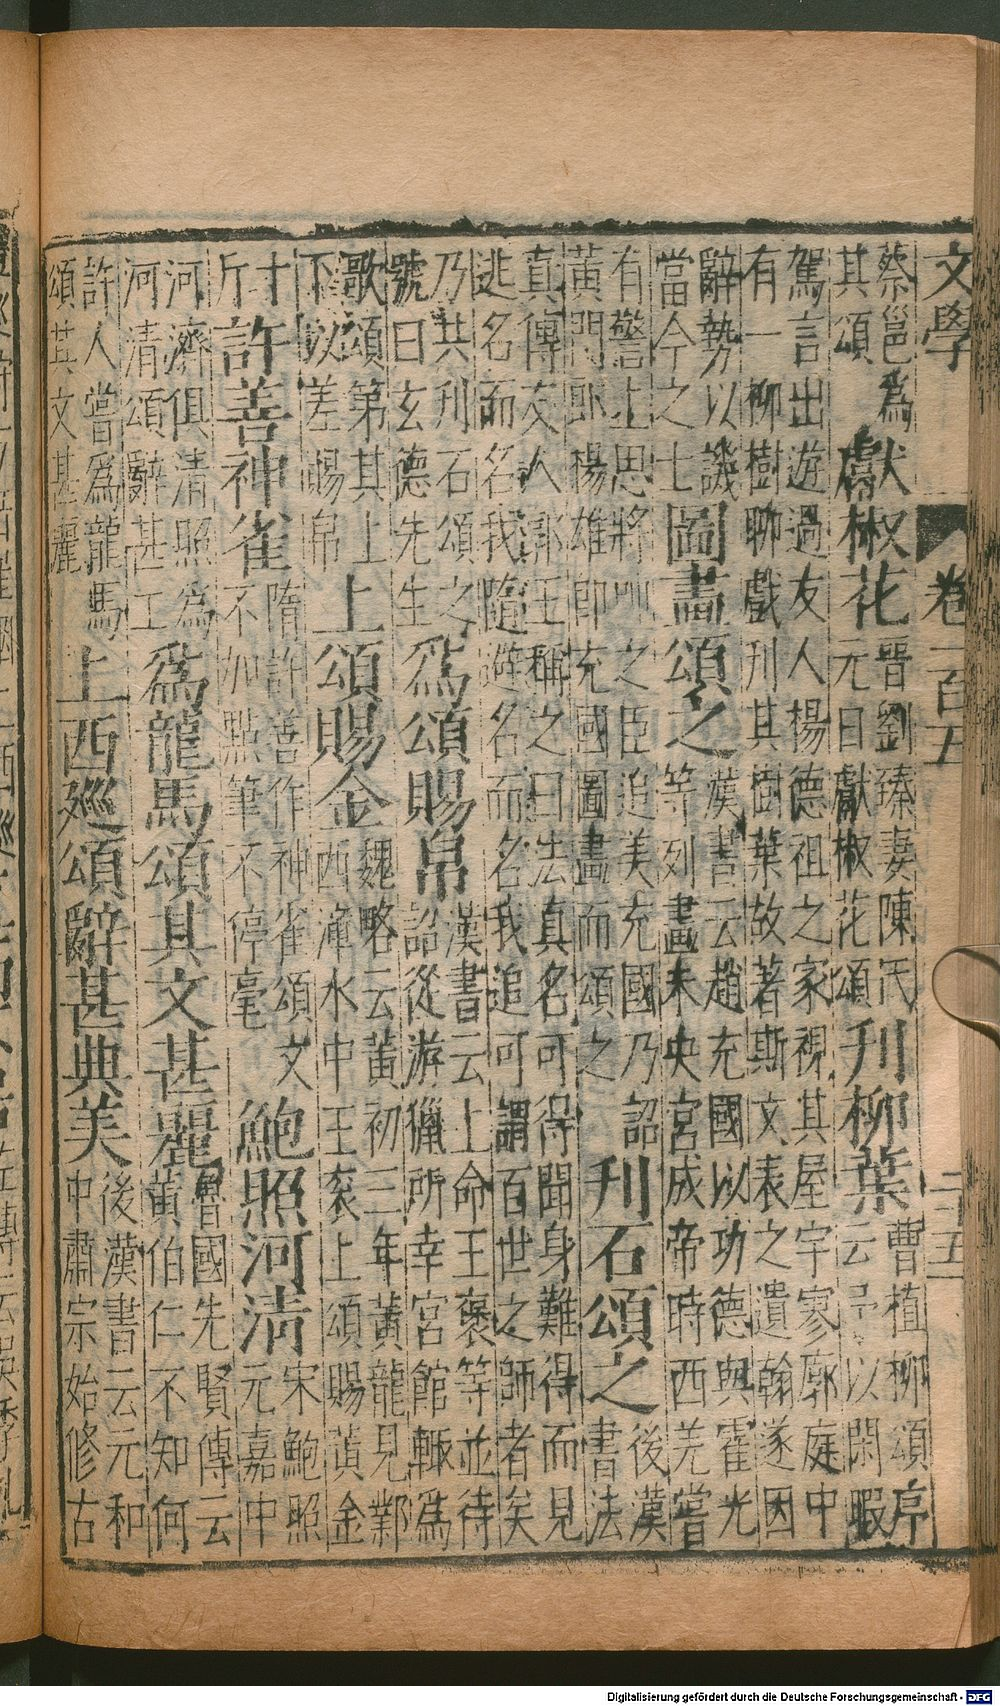 文學 卷一百五 二十五
蔡邕為
其頌
獻椒花
晉劉臻妻陳氏
元日獻椒花頌
刊柳葉
曹植柳頌序
云予以閑暇
駕言出遊過友人楊德祖之家視其屋宇寥廓庭中
有一柳樹聊戲刊其樹葉故著斯文表之遺翰遂因
辭勢以譏
當今之士
圖畫頌之
漢書云趙充國以功德與霍光
等列畫未央宮成帝時西羌嘗
有警上思將帥之臣追美充國乃詔
黃門郎楊雄即充國圖畫而頌之
刊石頌之
後漢
書法
真傳友人郭王稱之曰法真名可得聞身難得而見
逃名而名我隨避名而名我追可謂百世之師者矣
乃共刊石頌之
號曰玄德先生
為頌賜帛
漢書云上命王褒等並待
詔從游獵所幸宮館輒為
歌頌第其上
下以差賜帛
上頌賜金
魏略云黃初三年黃龍見鄴
西漳水中王袞上頌賜黃金
十
斤
許善神雀
隋許善作神雀頌文
不加點筆不停毫
鮑照河清
宋鮑照
元嘉中
河濟俱清照為
河清頌辭甚工
為龍馬頌其文甚麗
魯國先賢傳云
黃伯仁不知何
許人嘗為龍馬
頌其文甚麗
上西廵頌辭甚典美
後漢書云元和
中肅宗始修古
Digitalisierung gefördert durch die Deutsche Forschungsgemeinschaft - DFG